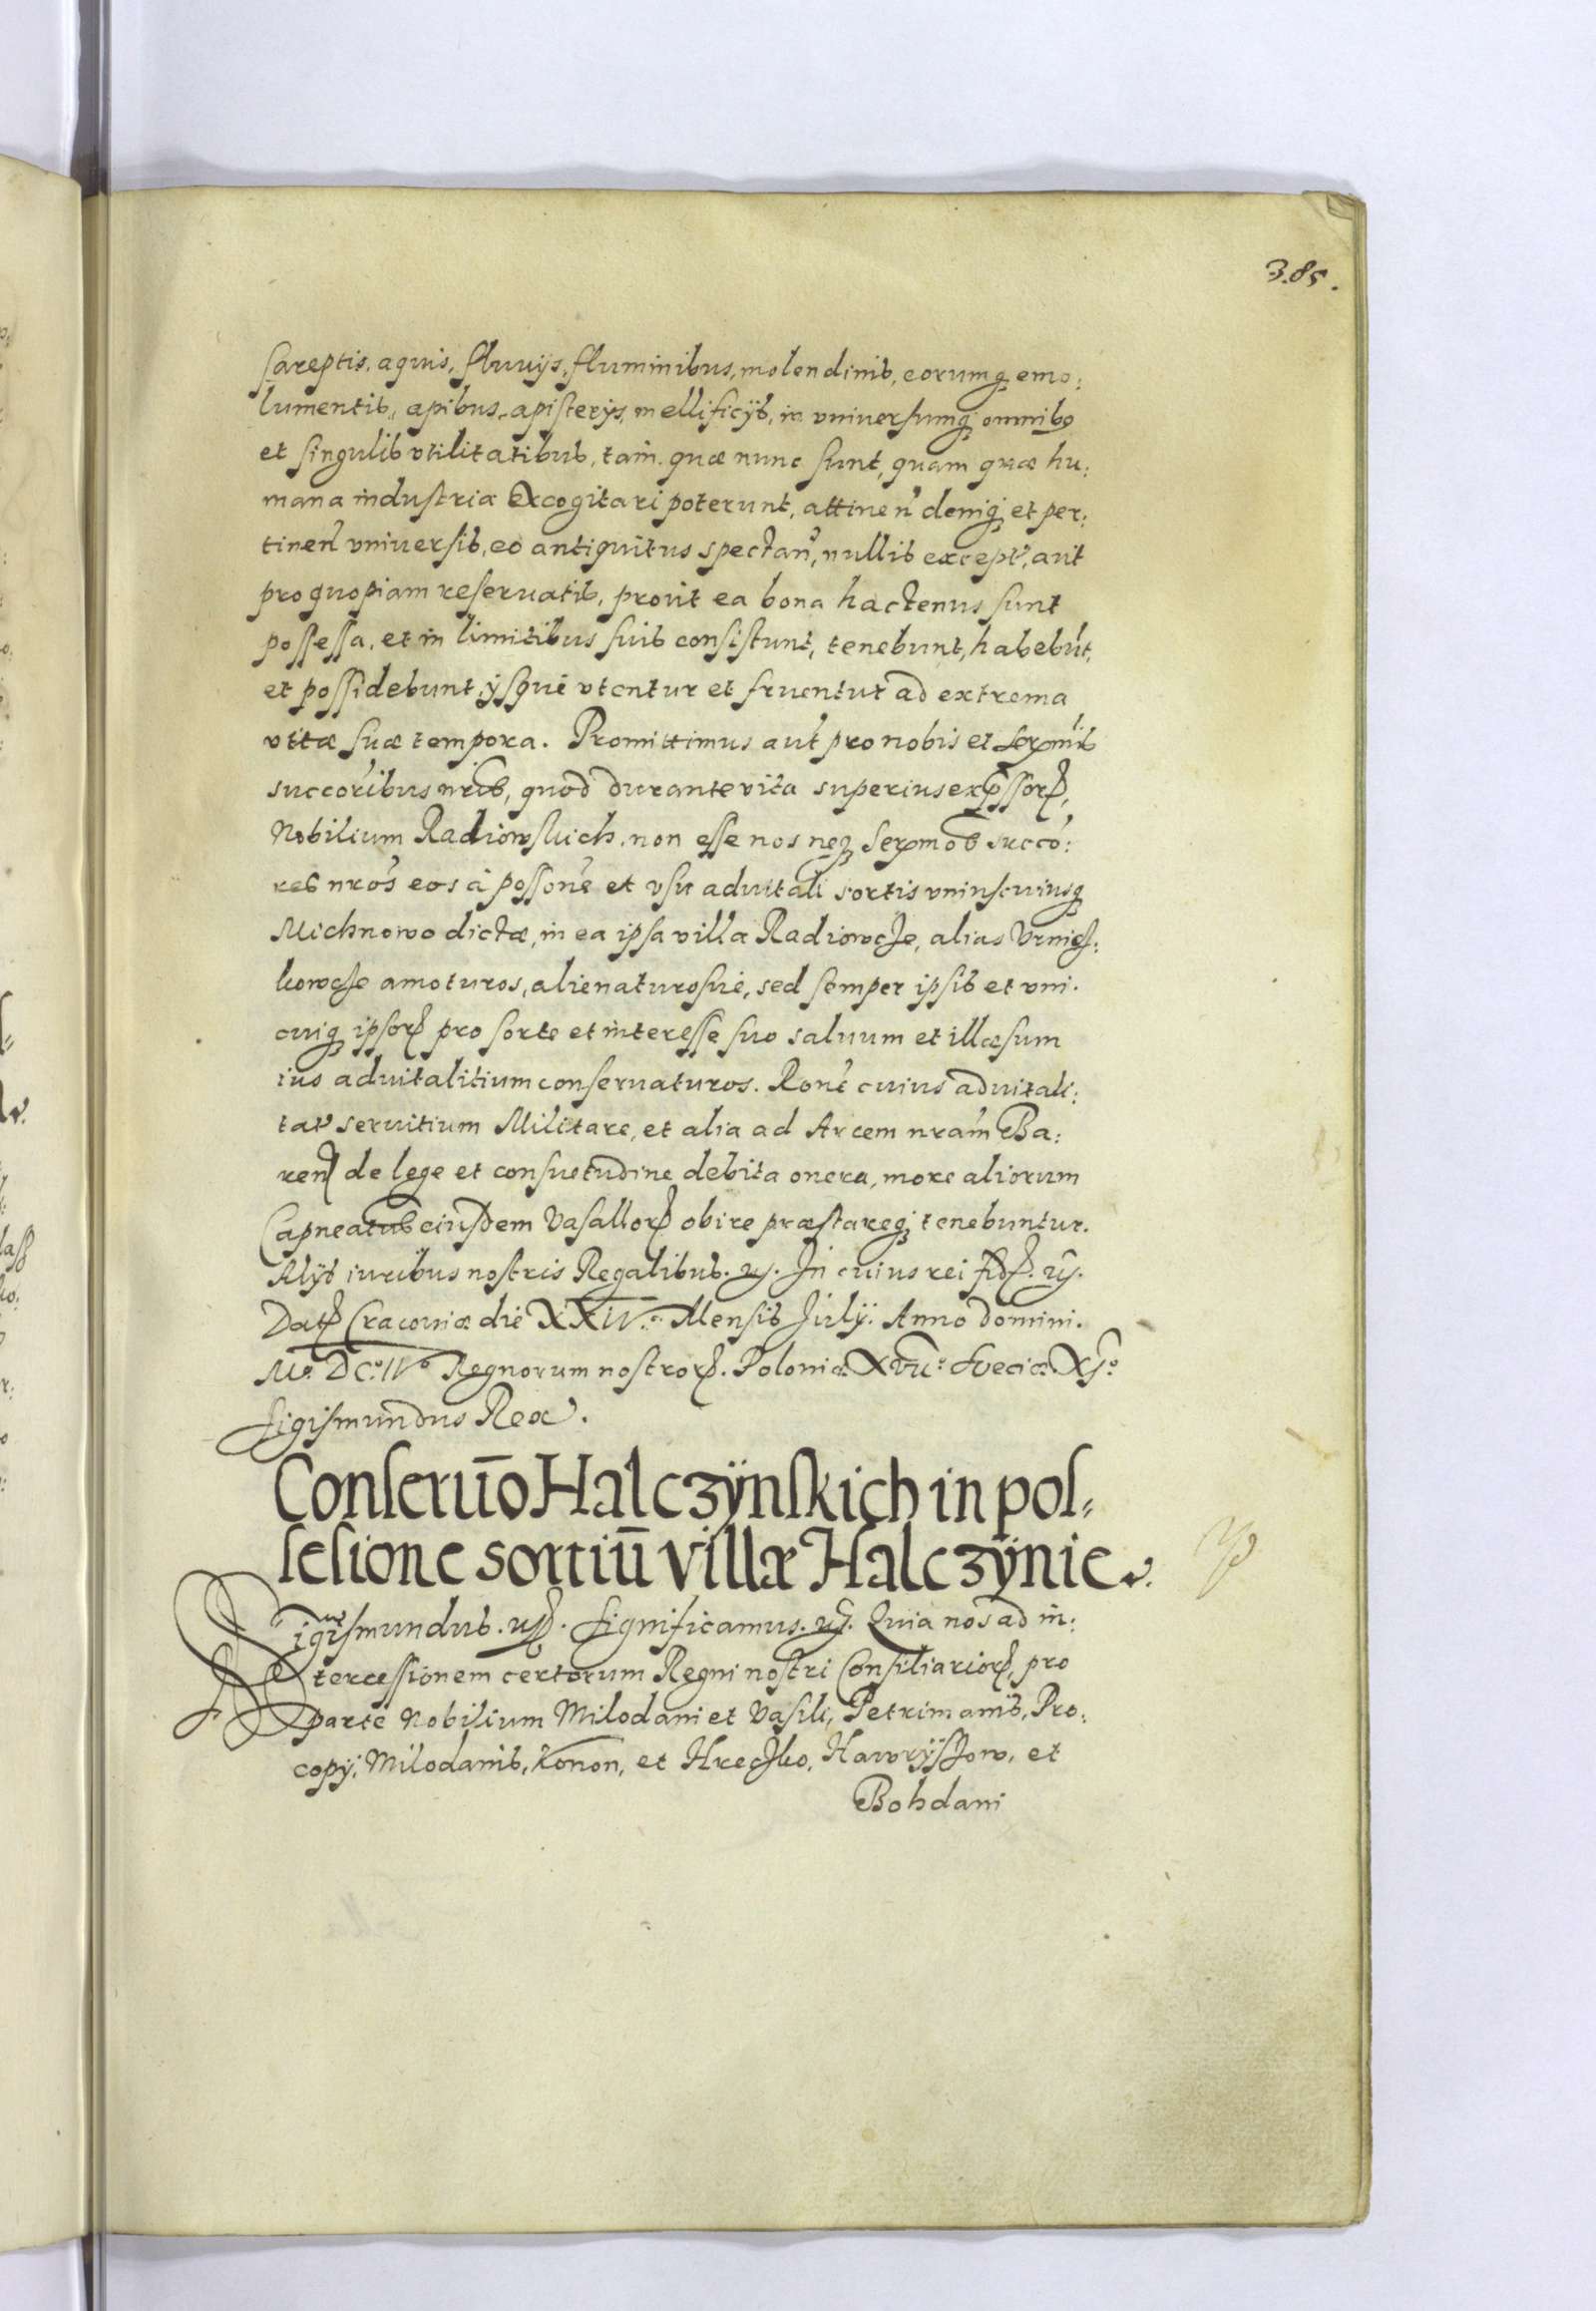 385.
sareptis, aquis, fluvijs, fluminibus, molendinis, eorumq emo:
lumentis, apibus, apisterijs, mellificijs, in vniuersumq omnibs
et singulis vtilitatibus, tam quæ nunc sunt, quam quæ hu:
mana industria Excogitari poterunt, attinen deniq et per:
tinen vniuersis, eo antiquitus spectan, nullis except, aut
pro quopiam reseruatis, prout ea bona hactenus sunt
possessa, et in limitibus suis consistunt, tenebunt, habebut,
et possidebunt, ijsque vtentur et fruentur ad extrema
vitæ suæ tempora. Promittimus aut pro nobis et Sermis
succoribus nris, quod durante vita superius expssor,
Nobilium Radiowskich, non esse nos neq Sermos succo:
res nros eos à possone et vsu aduitali sortis vniuscuiusq
Michnowo dictæ, in ea ipsa villa Radiowcze, alias Vrnies:
kowcze amoturos, alienaturosue, sed semper ipsis et vni.
cuiq ipsor pro sorte et interesse suo saluum et illæsum
ius aduitalitium conseruaturos. Rone cuius aduitali:
tat seruitium Militare, et alia ad Arcem nram Ba:
ren de lege et consuetudine debita onera, more aliorum
Capneatus eiusdem Vasallor obire præstareq tenebuntur.
Alijs iuribus nostris Regalibus. In cuius rei fid.
Dat Cracouiæ die XXIV. Mensis Julij. Anno Domini.
Mo. DCo. IVo Regnorum nostror. Poloniæ XVIIo Sveciæ XIo
Sigismundus Rex.
Conseruo Halczÿnskich in pos
sesione sortiu villæ Halczÿnie
Sigismundus. Significamus. Quia nos ad in:
tercessionem certorum Regni nostri Consiliarior, pro
parte Nobilium Milodani et Vasili, Petrimanis, Pro:
copij, Milodanis, Konon, et Hreczko, Hawrÿszow, et
Bohdani